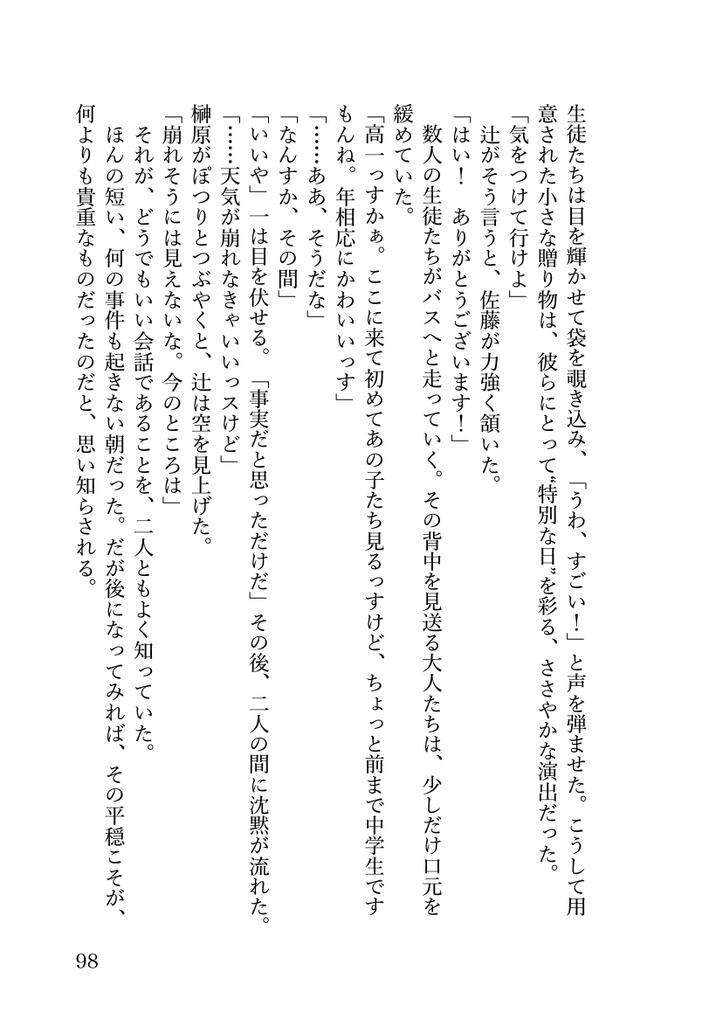 生徒たちは目を輝かせて袋を覗き込み、「うわ、すごい！」と声を弾ませた。こうして用
意された小さな贈り物は、彼らにとって〝特別な日〟を彩る、ささやかな演出だった。
「気をつけて行けよ」
　辻がそう言うと、佐藤が力強く頷いた。
「はい！　ありがとうございます！」
　数人の生徒たちがバスへと走っていく。その背中を見送る大人たちは、少しだけ口元を
緩めていた。
「高一っすかぁ。ここに来て初めてあの子たち見るっすけど、ちょっと前まで中学生です
もんね。年相応にかわいいっす」
「……ああ、そうだな」
「なんすか、その間」
「いいや」一は目を伏せる。「事実だと思っただけだ」その後、二人の間に沈黙が流れた。
「……天気が崩れなきゃいいっスけど」
榊原がぽつりとつぶやくと、辻は空を見上げた。
「崩れそうには見えないな。今のところは」
　それが、どうでもいい会話であることを、二人ともよく知っていた。
　ほんの短い、何の事件も起きない朝だった。だが後になってみれば、その平穏こそが、
何よりも貴重なものだったのだと、思い知らされる。
98